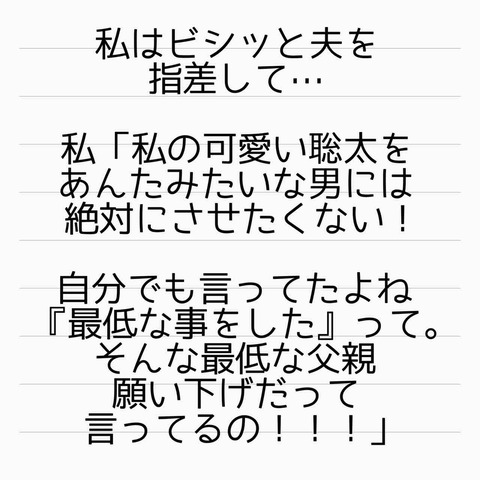 私はビシッと夫を
指差して…
私「私の可愛い聡太を
あんたみたいな男には
絶対にさせたくない！
自分でも言ってたよね
『最低な事をした』って。
そんな最低な父親
願い下げだって
言ってるの！！！」